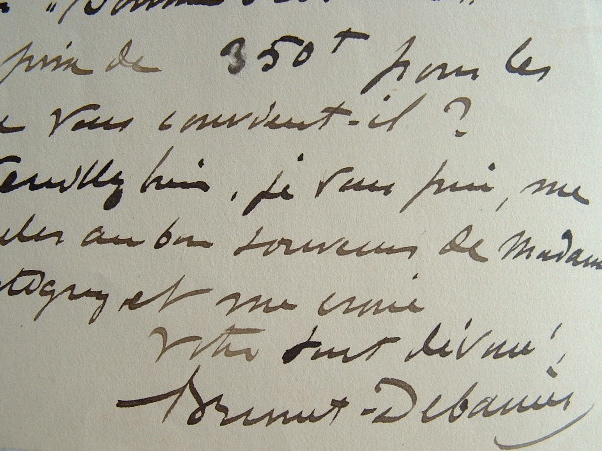 prix de 350f pour les
vous convient-il ?
Veuillez bien, je vous prie, me
au bon souvenir de Madame
et me croire
Votre tout dévoué,
Brunet-Debaines